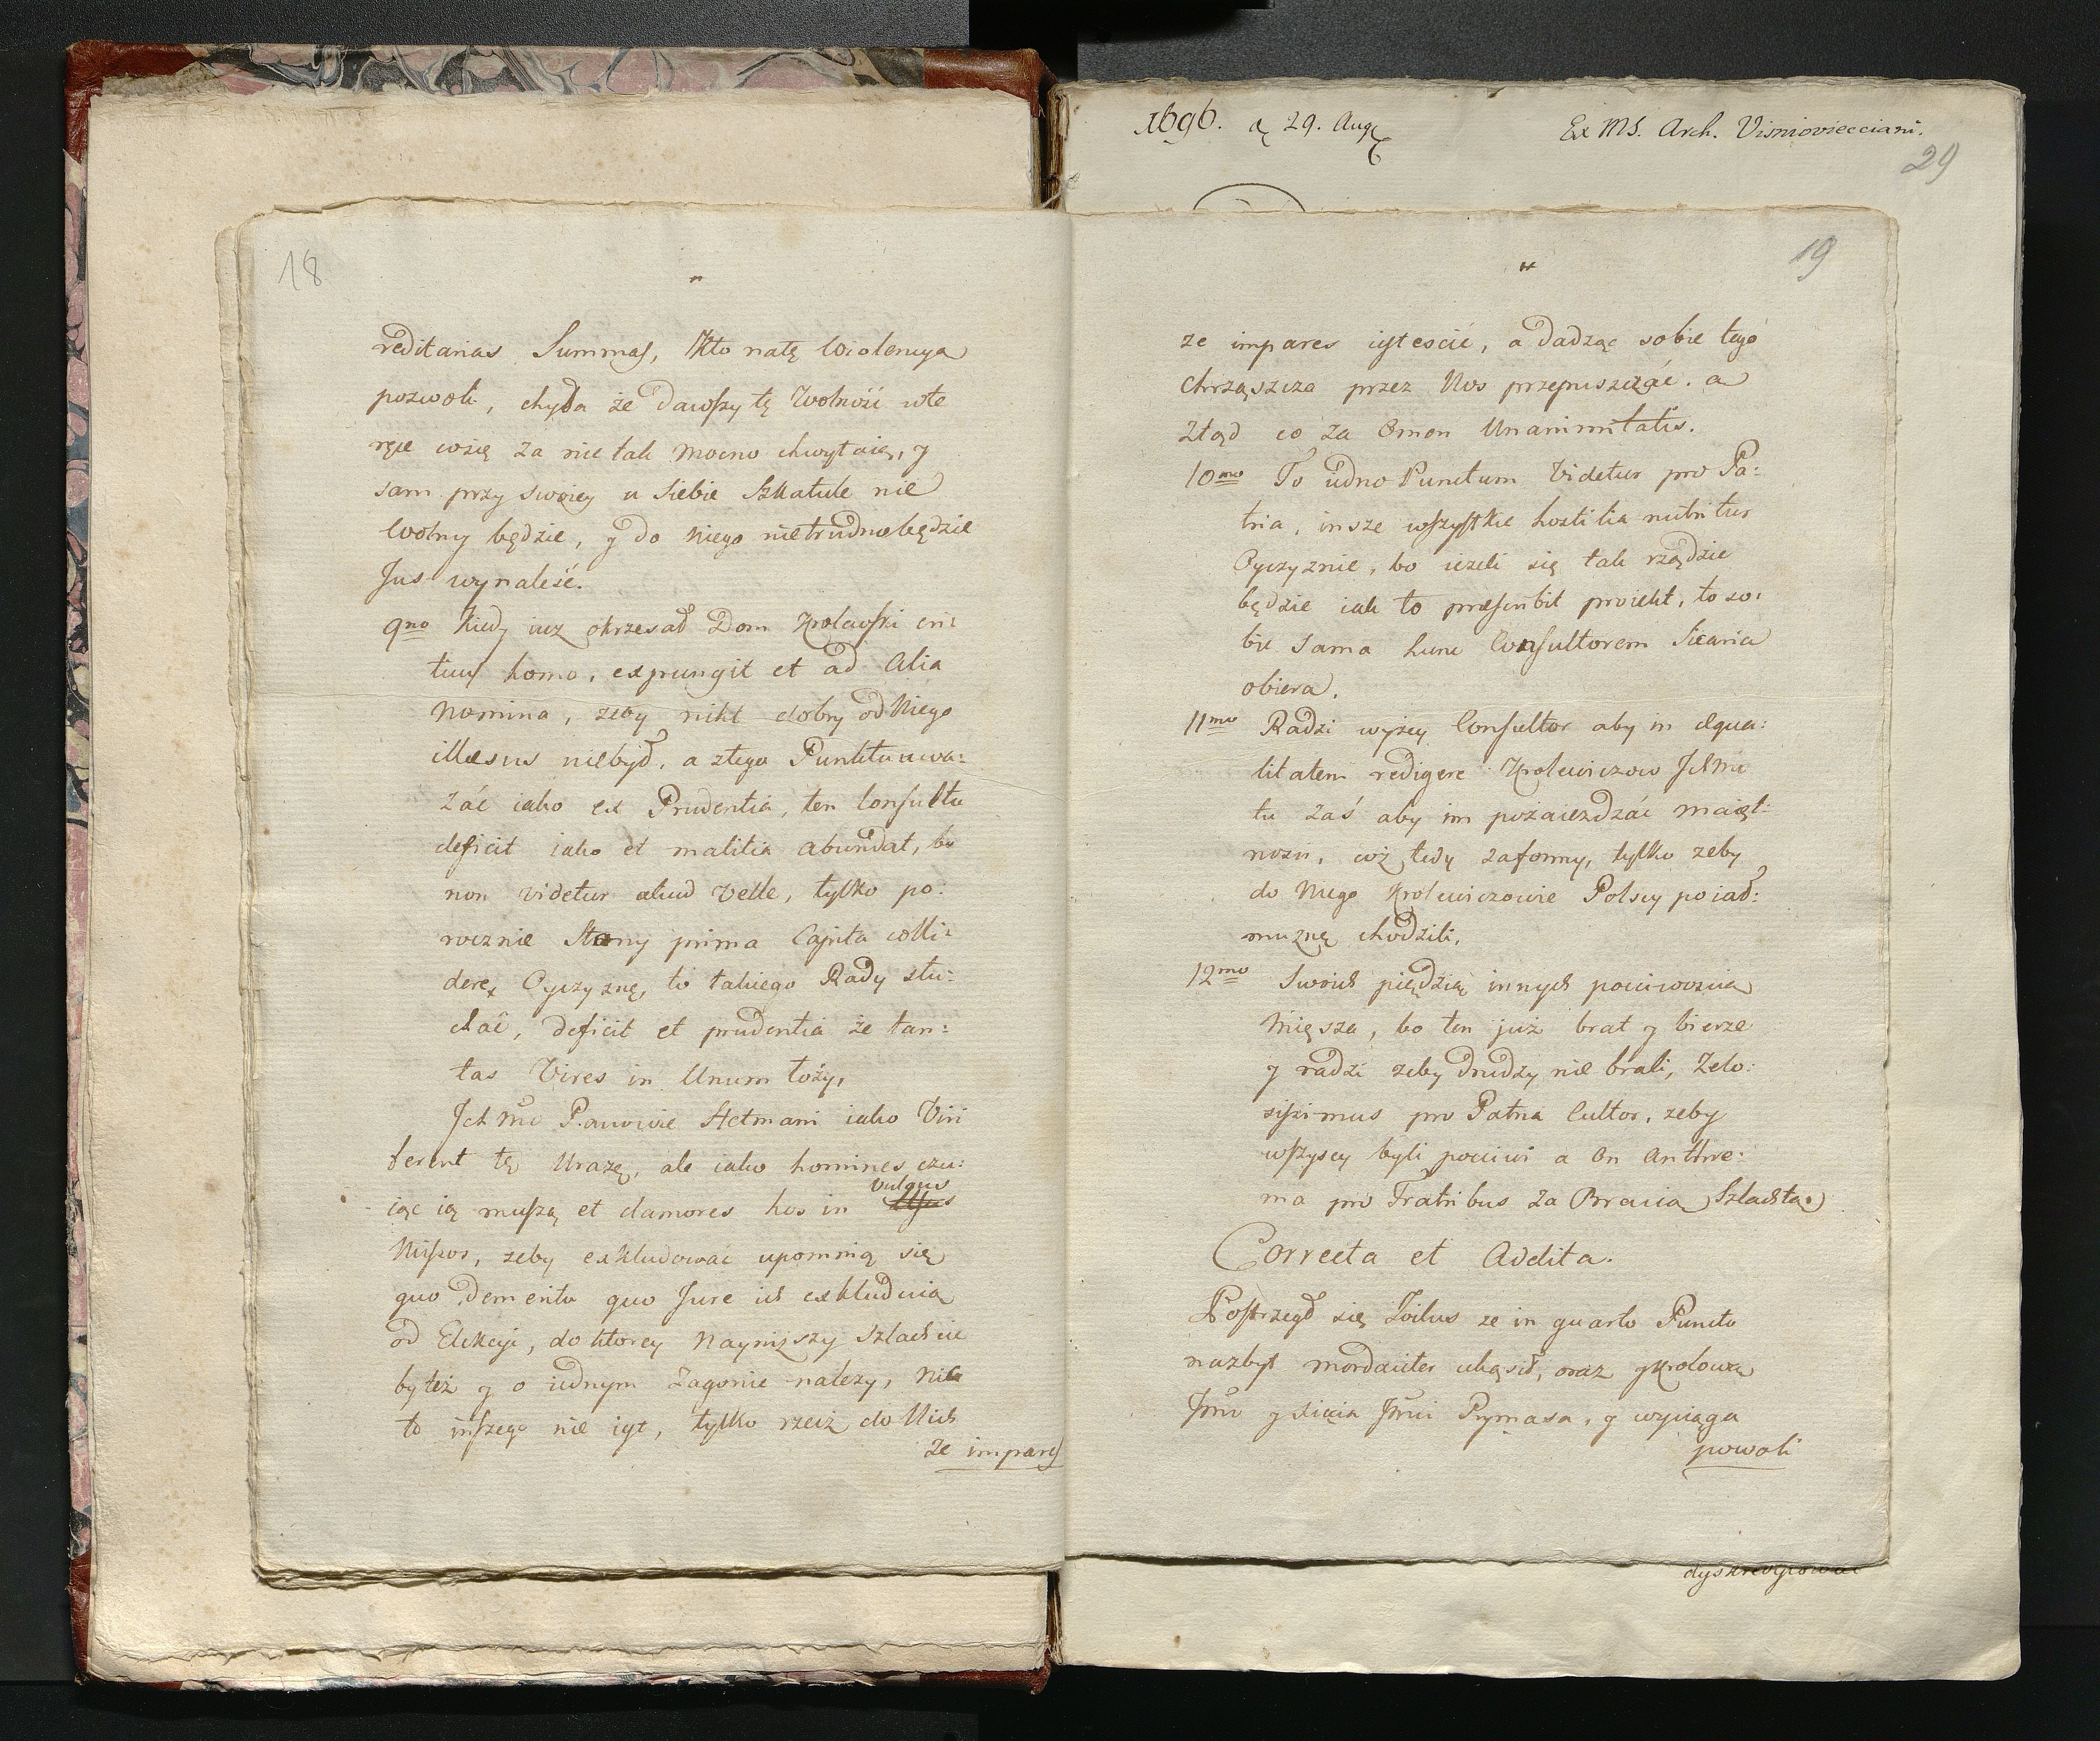 18
reditarias Summas, Kto natę Wiolencya
pozwoli, chyba że dawszy tę Wolność wte
ręce wsię za nie tak mocno chwytaię, y
sam przy swoiey u siebie Szkatule nie
Wolny będzie, y do niego nietrudno będzie
Jus wynaleść.
9no Kiedy iuż okrzesał Dom Krolewski
tuus homo, expungit et ad alia
Nomina, zeby nikt dobry od Niego
illæsus niebył, a ztego Punktu uwa:
zać iako ex Prudentia, ten Consultu
deficit iako et malitia abundat, bo
non videtur aliud Velle, tylko po:
rocznie Stany prima Capita colli:
dere, Oyczyznę, to takiego Rady słu:
chać, deficit et prudentia że tan:
tas Vires in Unum łoży,
Jch Mć Panowie Hetmani iako Viri
ferent tę Urazę, ale iako homines czu:
iąc ią muszą et clamores hos in vulgus
Missos, zeby exkludować upomnią się
quo Demerito quo Jure ich exkluduią
od Elekcyi, do ktorey Nayniższy Szlachcic
byleż y o iednym Zagonie nalezy, Nic
to inszego nie iest, tylko rzeiz do Nich
ze impares
1696. a 29. Aug
Ex MS. Arch. Visniovieciani.
29
19
ze impares iesteście, a dadząc sobie tego
chrząszcza przez Nos przepuszczać. a
Ztąd co za Omen Unanimitatis.
10mo To iedno Punctum Videtur pro Pa:
tria, insze wszystkie hostilia nutritur
Oyczyznie, bo iezeli się tak rządzic
będzie iak to præscribit proiekt, to so:
bie sama hunc Consultorem Sicaria
obiera.
11mo Radzi wyżey Consultor aby in æqua:
litatem redigere Krolewiczow Jchmć
tu zaś aby im pozaieżdżać maięt:
nosci, coż tedy za formy, tylko zeby
do Niego Krolewiczowie Polscy po iał:
mużnę chodzili.
12mo Swoich piędzią innych pociwoscia
Mięsza, bo ten już brat y bierze
y radzi zeby drudzy nie brali, Zelo:
sissimus pro Patria Cultor, zeby
wszyscy byli pociwi a On Anthre:
ma pro Fratribus za Bracia Szlachta
Correcta et Addita.
Postrzegł się Zoilus ze in quarto Puncto
nazbyt mordaciter ukąsił, oraz y Krolową
Jmć y Xięcia Jmci Prymasa, y wyciąga
powoli
dyskrecyowac